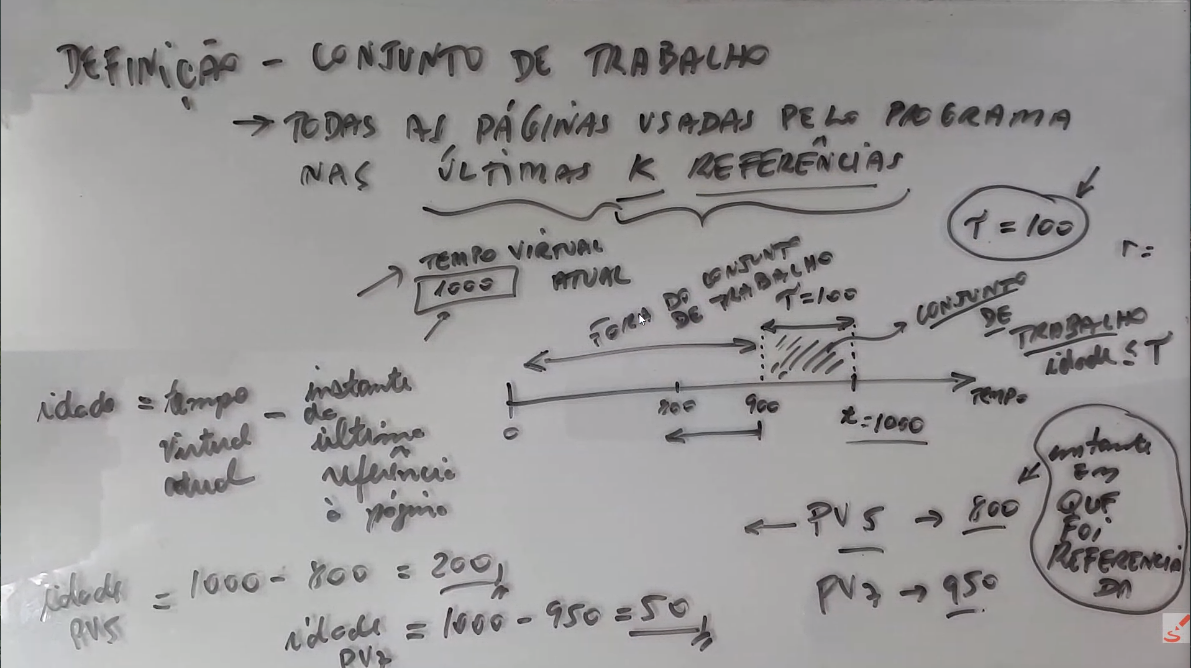 DEFINIÇÃO - CONJUNTO DE TRABALHO
→ TODAS AS PÁGINAS USADAS PELO PROGRAMA
NAS ÚLTIMAS K REFERÊNCIAS
T = 100
r =
TEMPO VIRTUAL
1000 ATUAL
FORA DO CONJUNTO
DE TRABALHO
T=100
CONJUNTO
DE
TRABALHO
idade ≤ T
0
800
900
t=1000
TEMPO
idade = tempo
virtual
atual
- instante
da
última
referência
à página
instante
EM
QUE
FOI
REFERENCIA
DA
← PV5 → 800
PV7 → 950
idade
PV5
= 1000 - 800 = 200
idade
PV7
= 1000 - 950 = 50